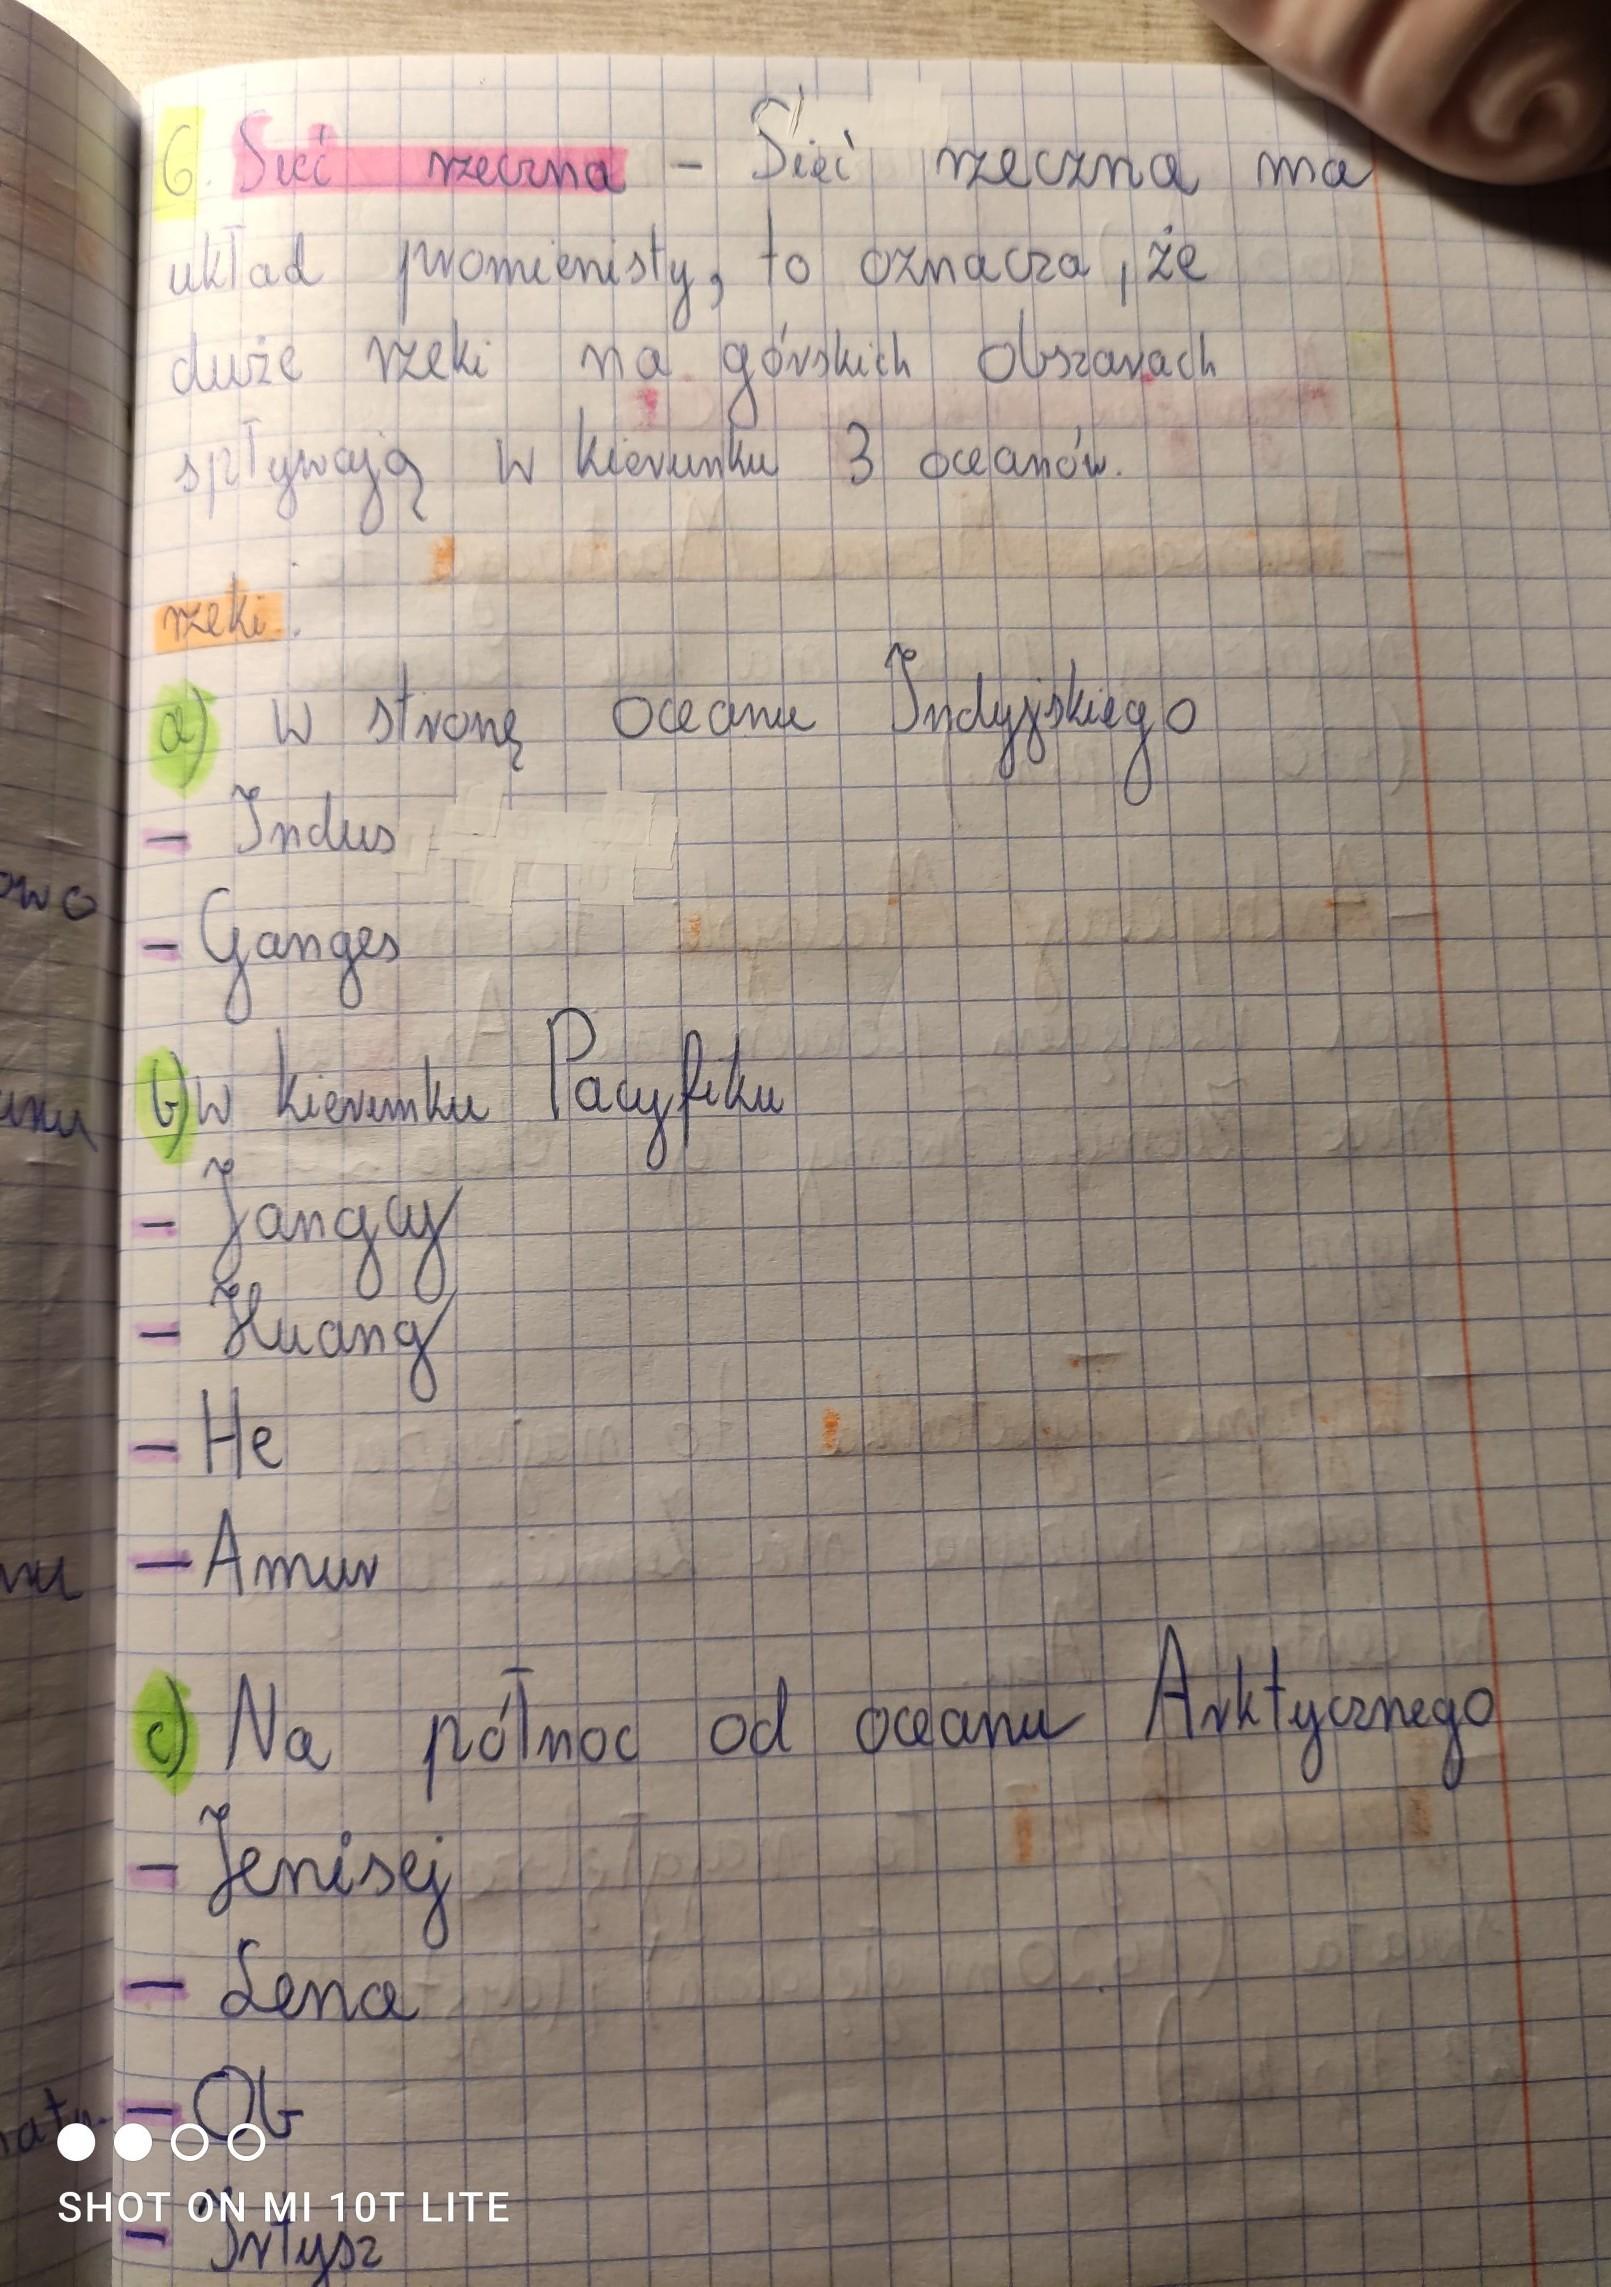 6. Sieć rzeczna - Sieć rzeczna ma
układ promienisty, to oznacza, że
duże rzeki na górskich obszarach
spływają w kierunku 3 oceanów.
rzeki.
a) w stronę oceanu Indyjskiego
- Indus
- Ganges
b) w kierunku Pacyfiku
- Jangcy
- Huang
- He
- Amur
c) Na północ od oceanu Arktycznego
- Jenisej
- Lena
- Ob
- Irtysz
SHOT ON MI 10T LITE